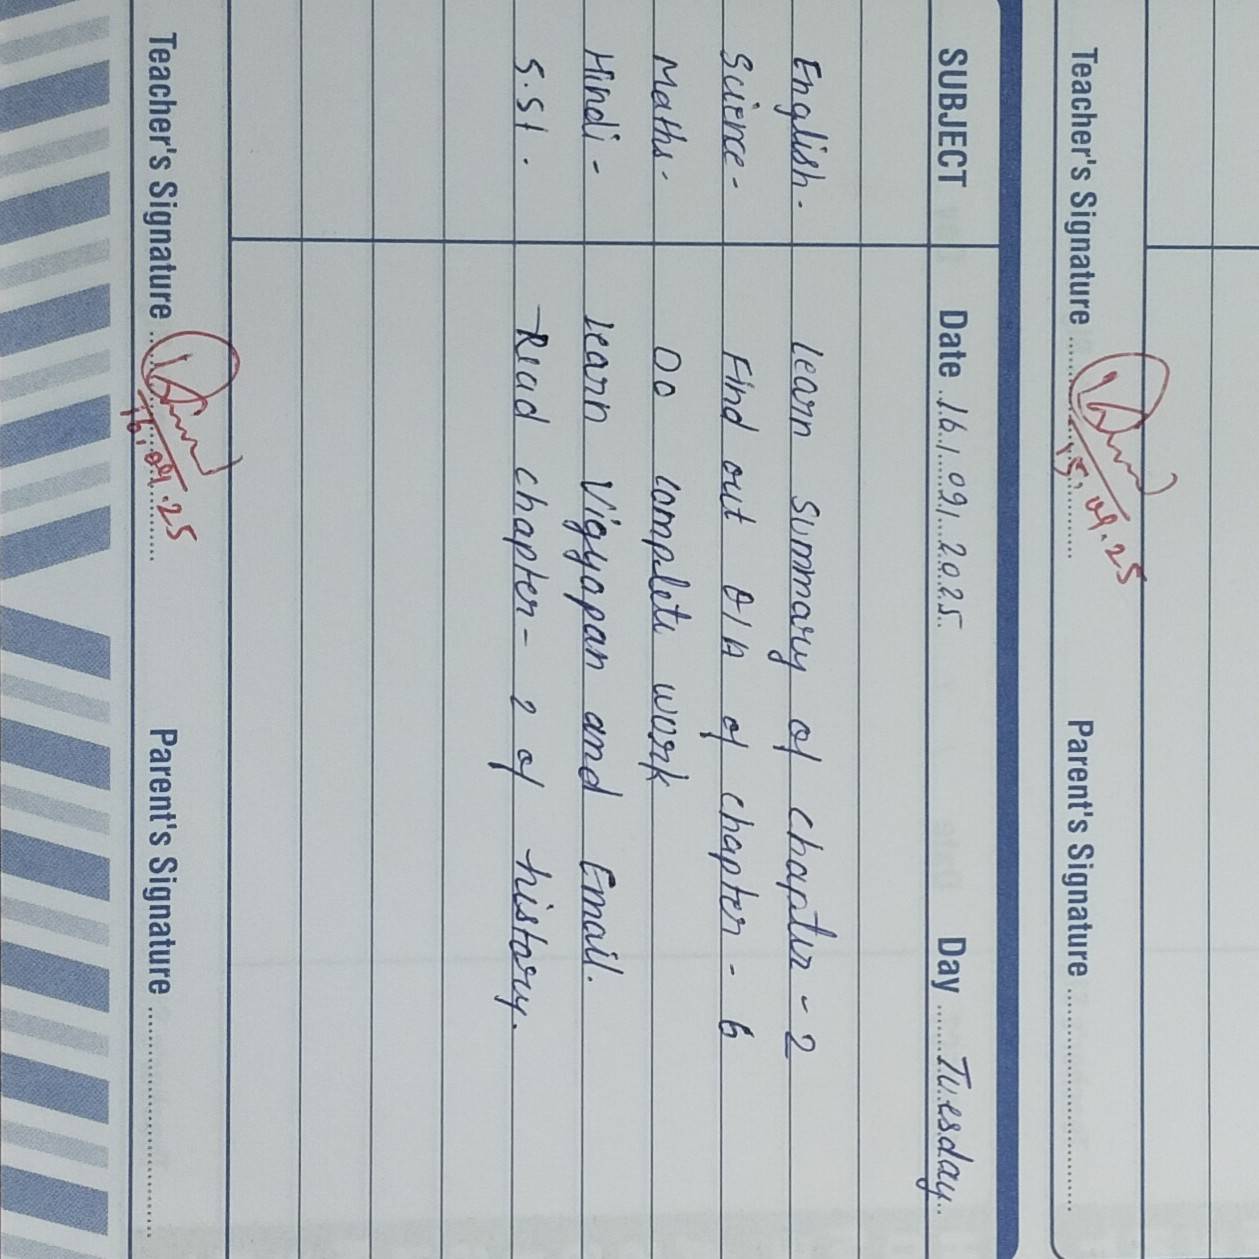 Teacher's Signature ........ 15.09.25 Parent's Signature ........
SUBJECT Date 16/09/2025 Day Tuesday
English. learn summary of chapter - 2
Science - Find out Q/A of chapter - 6
Maths. Do complete work
Hindi - learn Vigyapan and Email.
S.St. Read chapter - 2 of history.
Teacher's Signature ........ 16.09.25 Parent's Signature ........